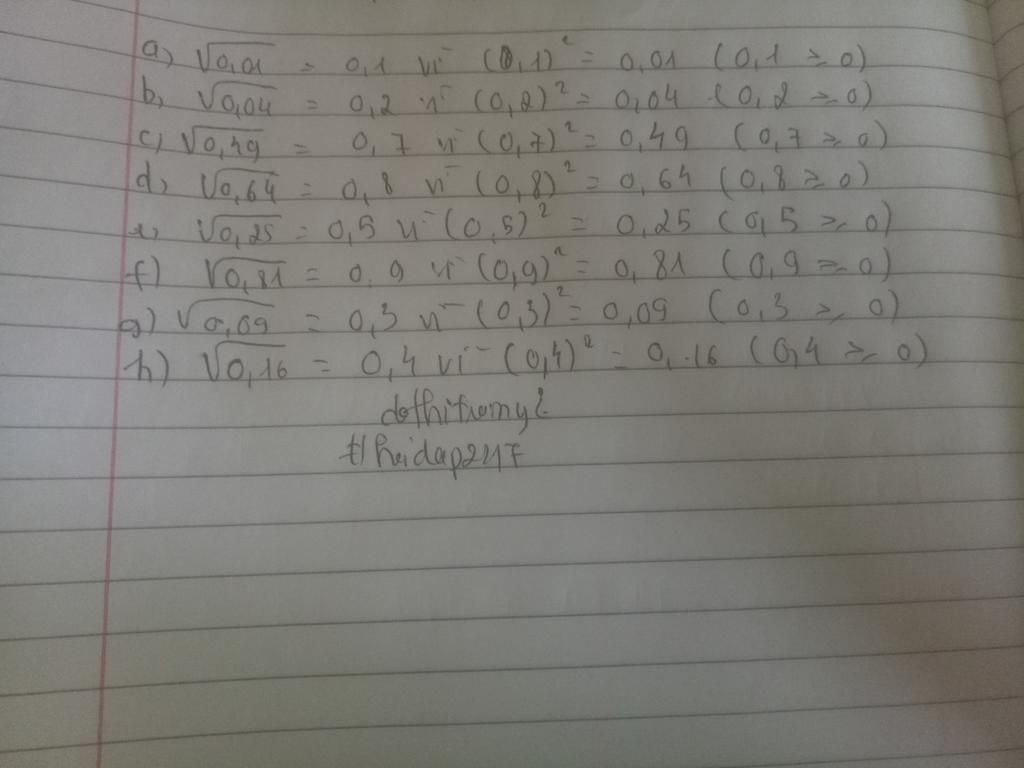 a) √0,01 = 0,1 vì (0,1)² = 0,01 (0,1 ≥ 0)
b, √0,04 = 0,2 vì (0,2)² = 0,04 (0,2 ≥ 0)
c, √0,49 = 0,7 vì (0,7)² = 0,49 (0,7 ≥ 0)
d, √0,64 = 0,8 vì (0,8)² = 0,64 (0,8 ≥ 0)
e, √0,25 = 0,5 vì (0,5)² = 0,25 (0,5 ≥ 0)
f) √0,81 = 0,9 vì (0,9)² = 0,81 (0,9 ≥ 0)
g) √0,09 = 0,3 vì (0,3)² = 0,09 (0,3 ≥ 0)
h) √0,16 = 0,4 vì (0,4)² = 0,16 (0,4 ≥ 0)